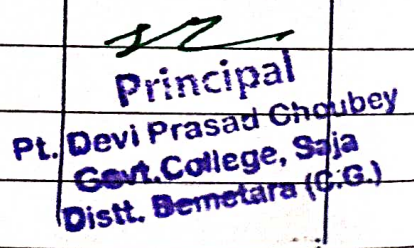 Principal
Pt. Devi Prasad Choubey
Govt. College, Saja
Distt. Bemetara (C.G.)